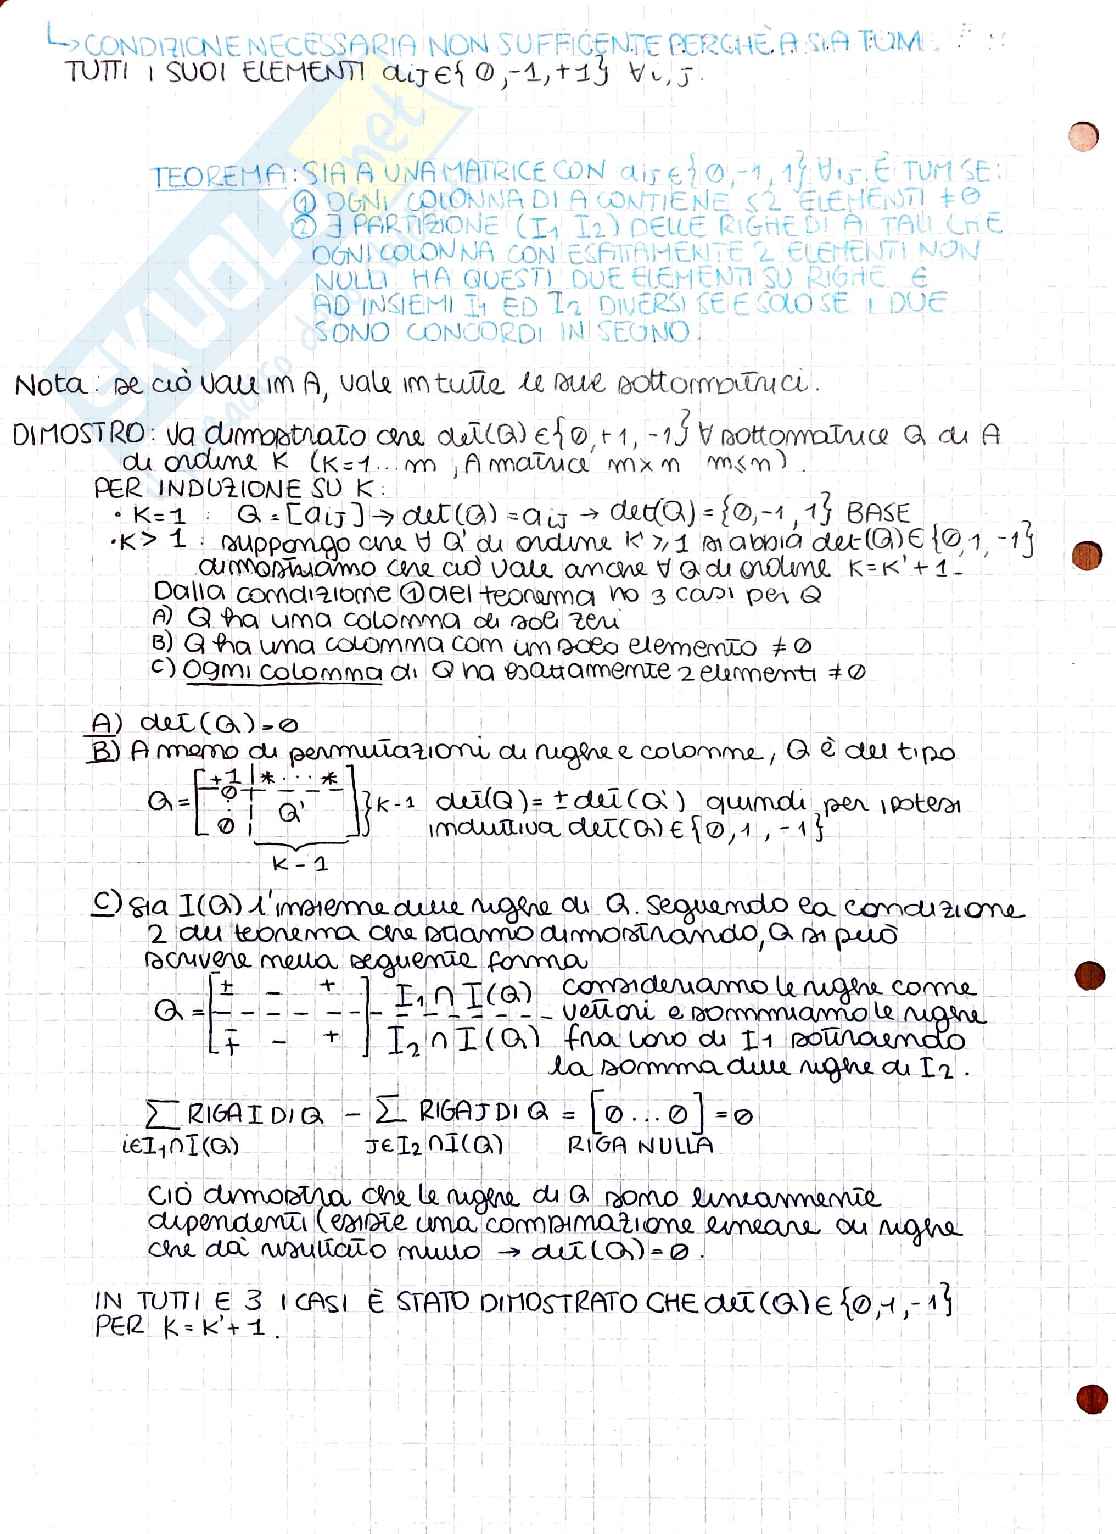 ↳ CONDIZIONE NECESSARIA NON SUFFICENTE PERCHÈ A SIA TUM:
TUTTI I SUOI ELEMENTI aij ∈ {0,-1,+1} ∀i,j.
TEOREMA: SIA A UNA MATRICE CON aij ∈ {0,-1,1} ∀ij. È TUM SE:
① OGNI COLONNA DI A CONTIENE ≤2 ELEMENTI ≠0
② ∃ PARTIZIONE (I1 I2) DELLE RIGHE DI A TALI CHE
OGNI COLONNA CON ESATTAMENTE 2 ELEMENTI NON
NULLI HA QUESTI DUE ELEMENTI SU RIGHE ∈
AD INSIEMI I1 ED I2 DIVERSI SE E SOLO SE I DUE
SONO CONCORDI IN SEGNO.
Nota: se ciò vale in A, vale in tutte le sue sottomatrici.
DIMOSTRO: va dimostrato che det(Q) ∈ {0,+1,-1} ∀ sottomatrice Q di A
di ordine K (K=1...m, A matrice m×n m≤n).
PER INDUZIONE SU K:
• K=1 : Q=[aij] → det(Q)=aij → det(Q)={0,-1,1} BASE
• K>1 : suppongo che ∀ Q' di ordine K'≥1 si abbia det(Q)∈{0,1,-1}
dimostriamo che ciò vale anche ∀ Q di ordine K=K'+1-
Dalla condizione ① del teorema ho 3 casi per Q
A) Q ha una colonna di soli zeri
B) Q ha una colonna con un solo elemento ≠0
C) Ogni colonna di Q ha esattamente 2 elementi ≠0
A) det(Q)=0
B) A meno di permutazioni di righe e colonne, Q è del tipo
Q = [+1 | * ... *
0 ⋮ 0 | Q'] }K-1 det(Q)=±det(Q') quindi per ipotesi
induttiva det(Q)∈{0,1,-1}
K-1
C) Sia I(Q) l'insieme delle righe di Q. Seguendo la condizione
2 del teorema che stiamo dimostrando, Q si può
scrivere nella seguente forma
Q = [± - +] I1 ∩ I(Q) consideriamo le righe come
vettori e sommiamo le righe
[∓ - +] I2 ∩ I(Q) fra loro di I1 sottraendo
la somma delle righe di I2.
∑ RIGA I DI Q - ∑ RIGA J DI Q = [0...0] = 0
i∈I1∩I(Q) J∈I2∩I(Q) RIGA NULLA
Ciò dimostra che le righe di Q sono linearmente
dipendenti (esiste una combinazione lineare di righe
che dà risultato nullo → det(Q)=0.
IN TUTTI E 3 I CASI È STATO DIMOSTRATO CHE det(Q)∈{0,1,-1}
PER K=K'+1.